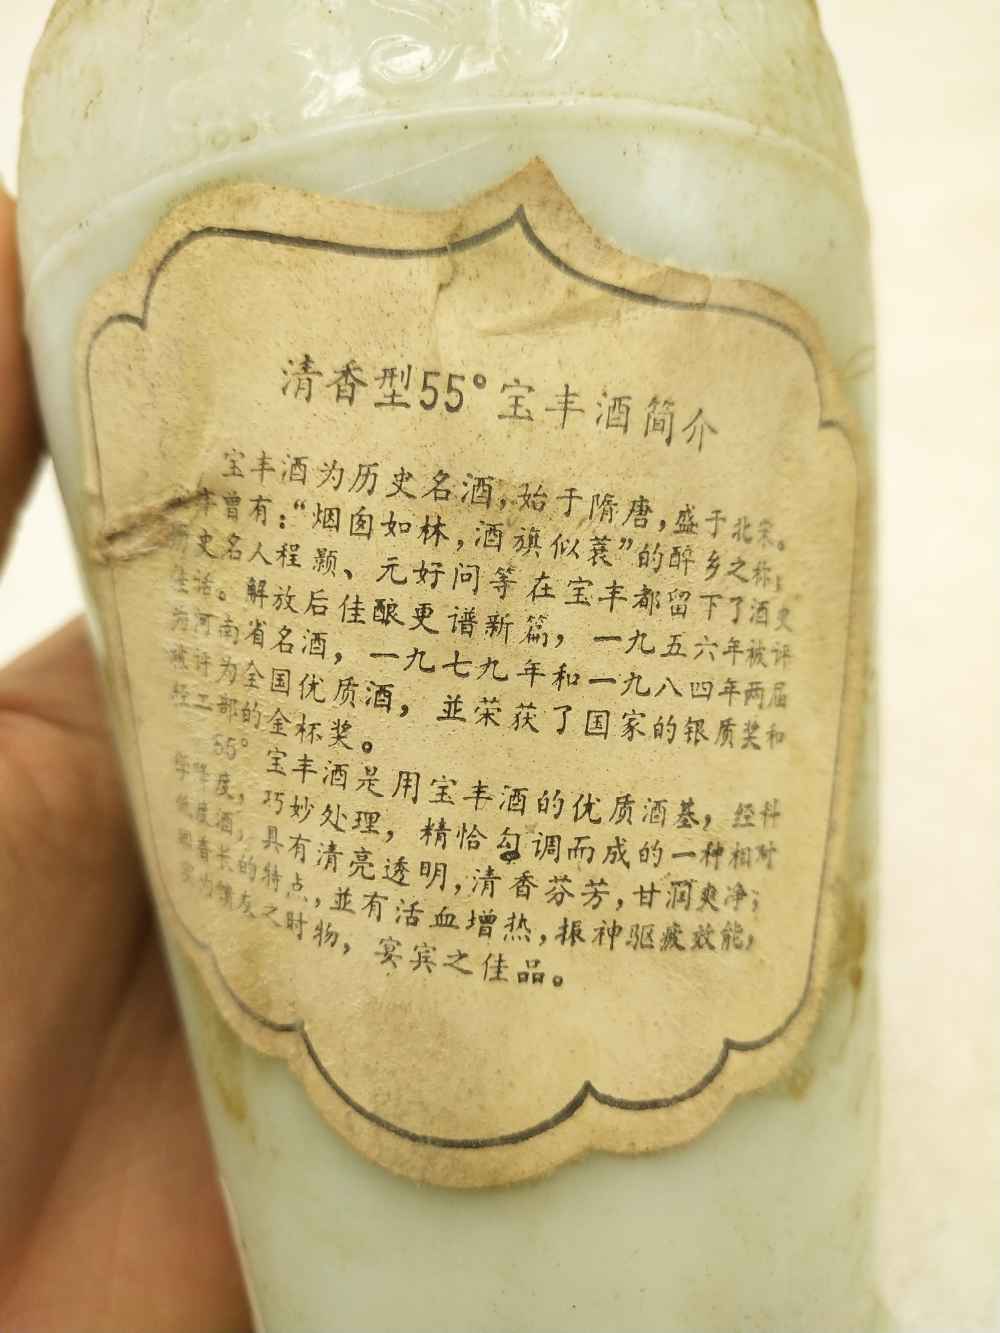 清香型55°宝丰酒简介
宝丰酒为历史名酒,始于隋唐,盛于北宋。
曾有:“烟囱如林,酒旗似蓑”的醉乡之称;
历史名人程颢、元好问等在宝丰都留下了酒史
佳话。解放后佳酿更谱新篇,一九五六年被评
为河南省名酒,一九七九年和一九八四年两届
被评为全国优质酒,並荣获了国家的银质奖和
轻工部的金杯奖。
55°宝丰酒是用宝丰酒的优质酒基,经科
学降度,巧妙处理,精恰勾调而成的一种相对
低度酒,具有清亮透明,清香芬芳,甘润爽净;
回香长的特点,並有活血增热,振神驱疲效能,
实为馈友之时物,宴宾之佳品。